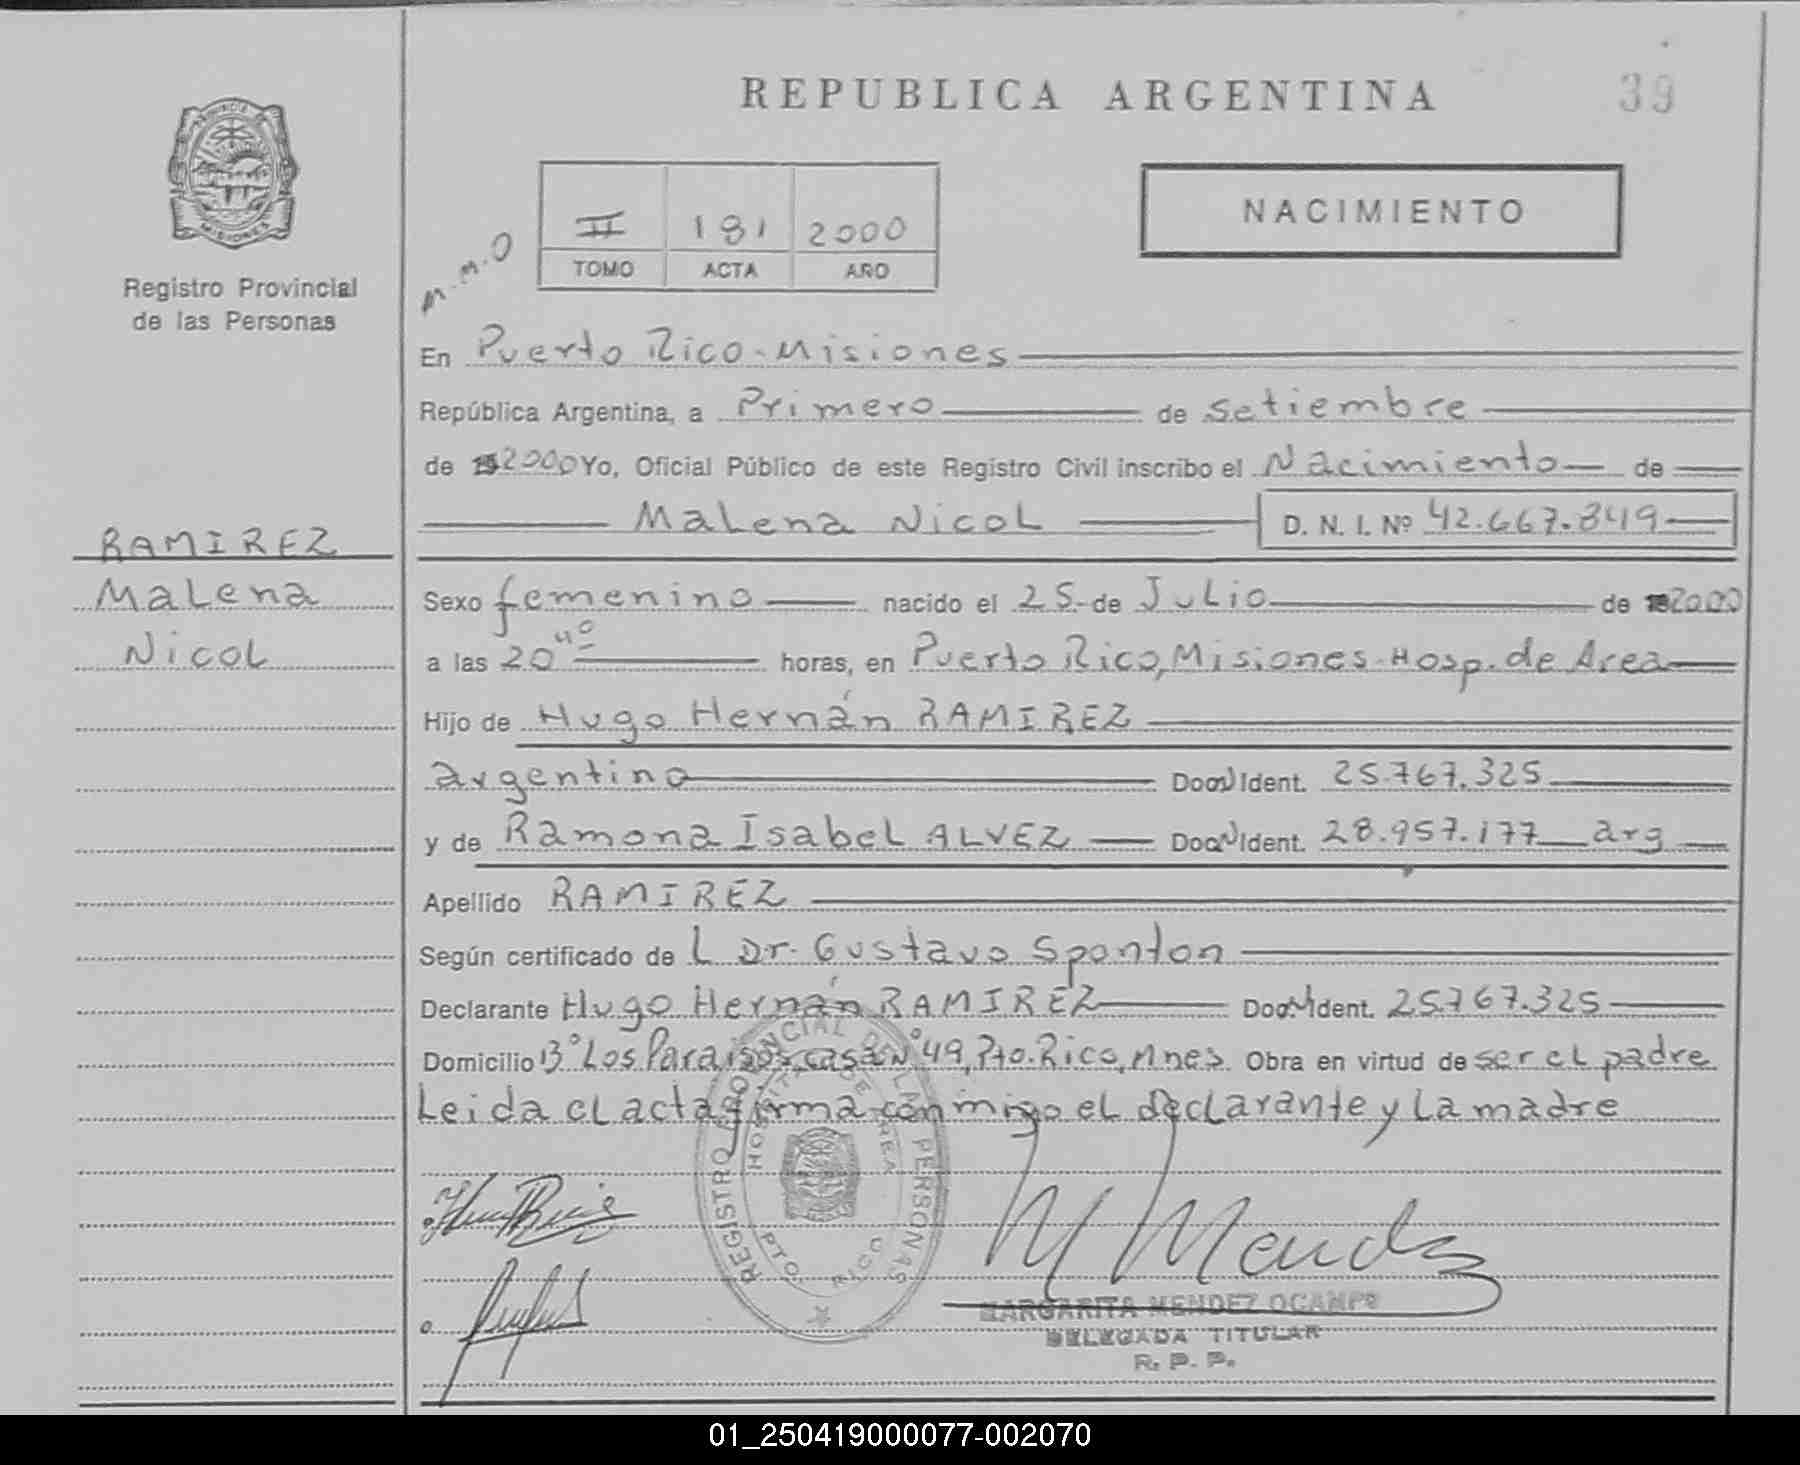 REPUBLICA ARGENTINA
39
PROVINCIA DE
MISIONES
Registro Provincial
de las Personas
II 181 2000
TOMO ACTA AÑO
NACIMIENTO
M.M.O
En Puerto Rico-Misiones
República Argentina, a Primero de setiembre
de 2000 Yo, Oficial Público de este Registro Civil inscribo el Nacimiento de
Malena Nicol D. N. I. Nº 42.667.849
RAMIREZ
Malena
Nicol
Sexo femenino nacido el 25 de Julio de 2000
a las 20 40 horas, en Puerto Rico, Misiones-Hosp. de Area
Hijo de Hugo Hernán RAMIREZ
argentino Ident. 25.767.325
y de Ramona Isabel ALVEZ Ident. 28.957.177 arg
Apellido RAMIREZ
Según certificado de L Dr. Gustavo Sponton
Declarante Hugo Hernán RAMIREZ Ident. 25.767.325
Domicilio Bº Los Paraisos, casa Nº 49, Pto. Rico, Mnes. Obra en virtud de ser el padre
Leida el acta firma conmigo el declarante y la madre
REGISTRO PROVINCIAL DE LAS PERSONAS
HOSPITAL DE AREA
PTO. RICO
M Mendez
MARGARITA MENDEZ OCAMPO
DELEGADA TITULAR
R. P. P.
01_250419000077-002070